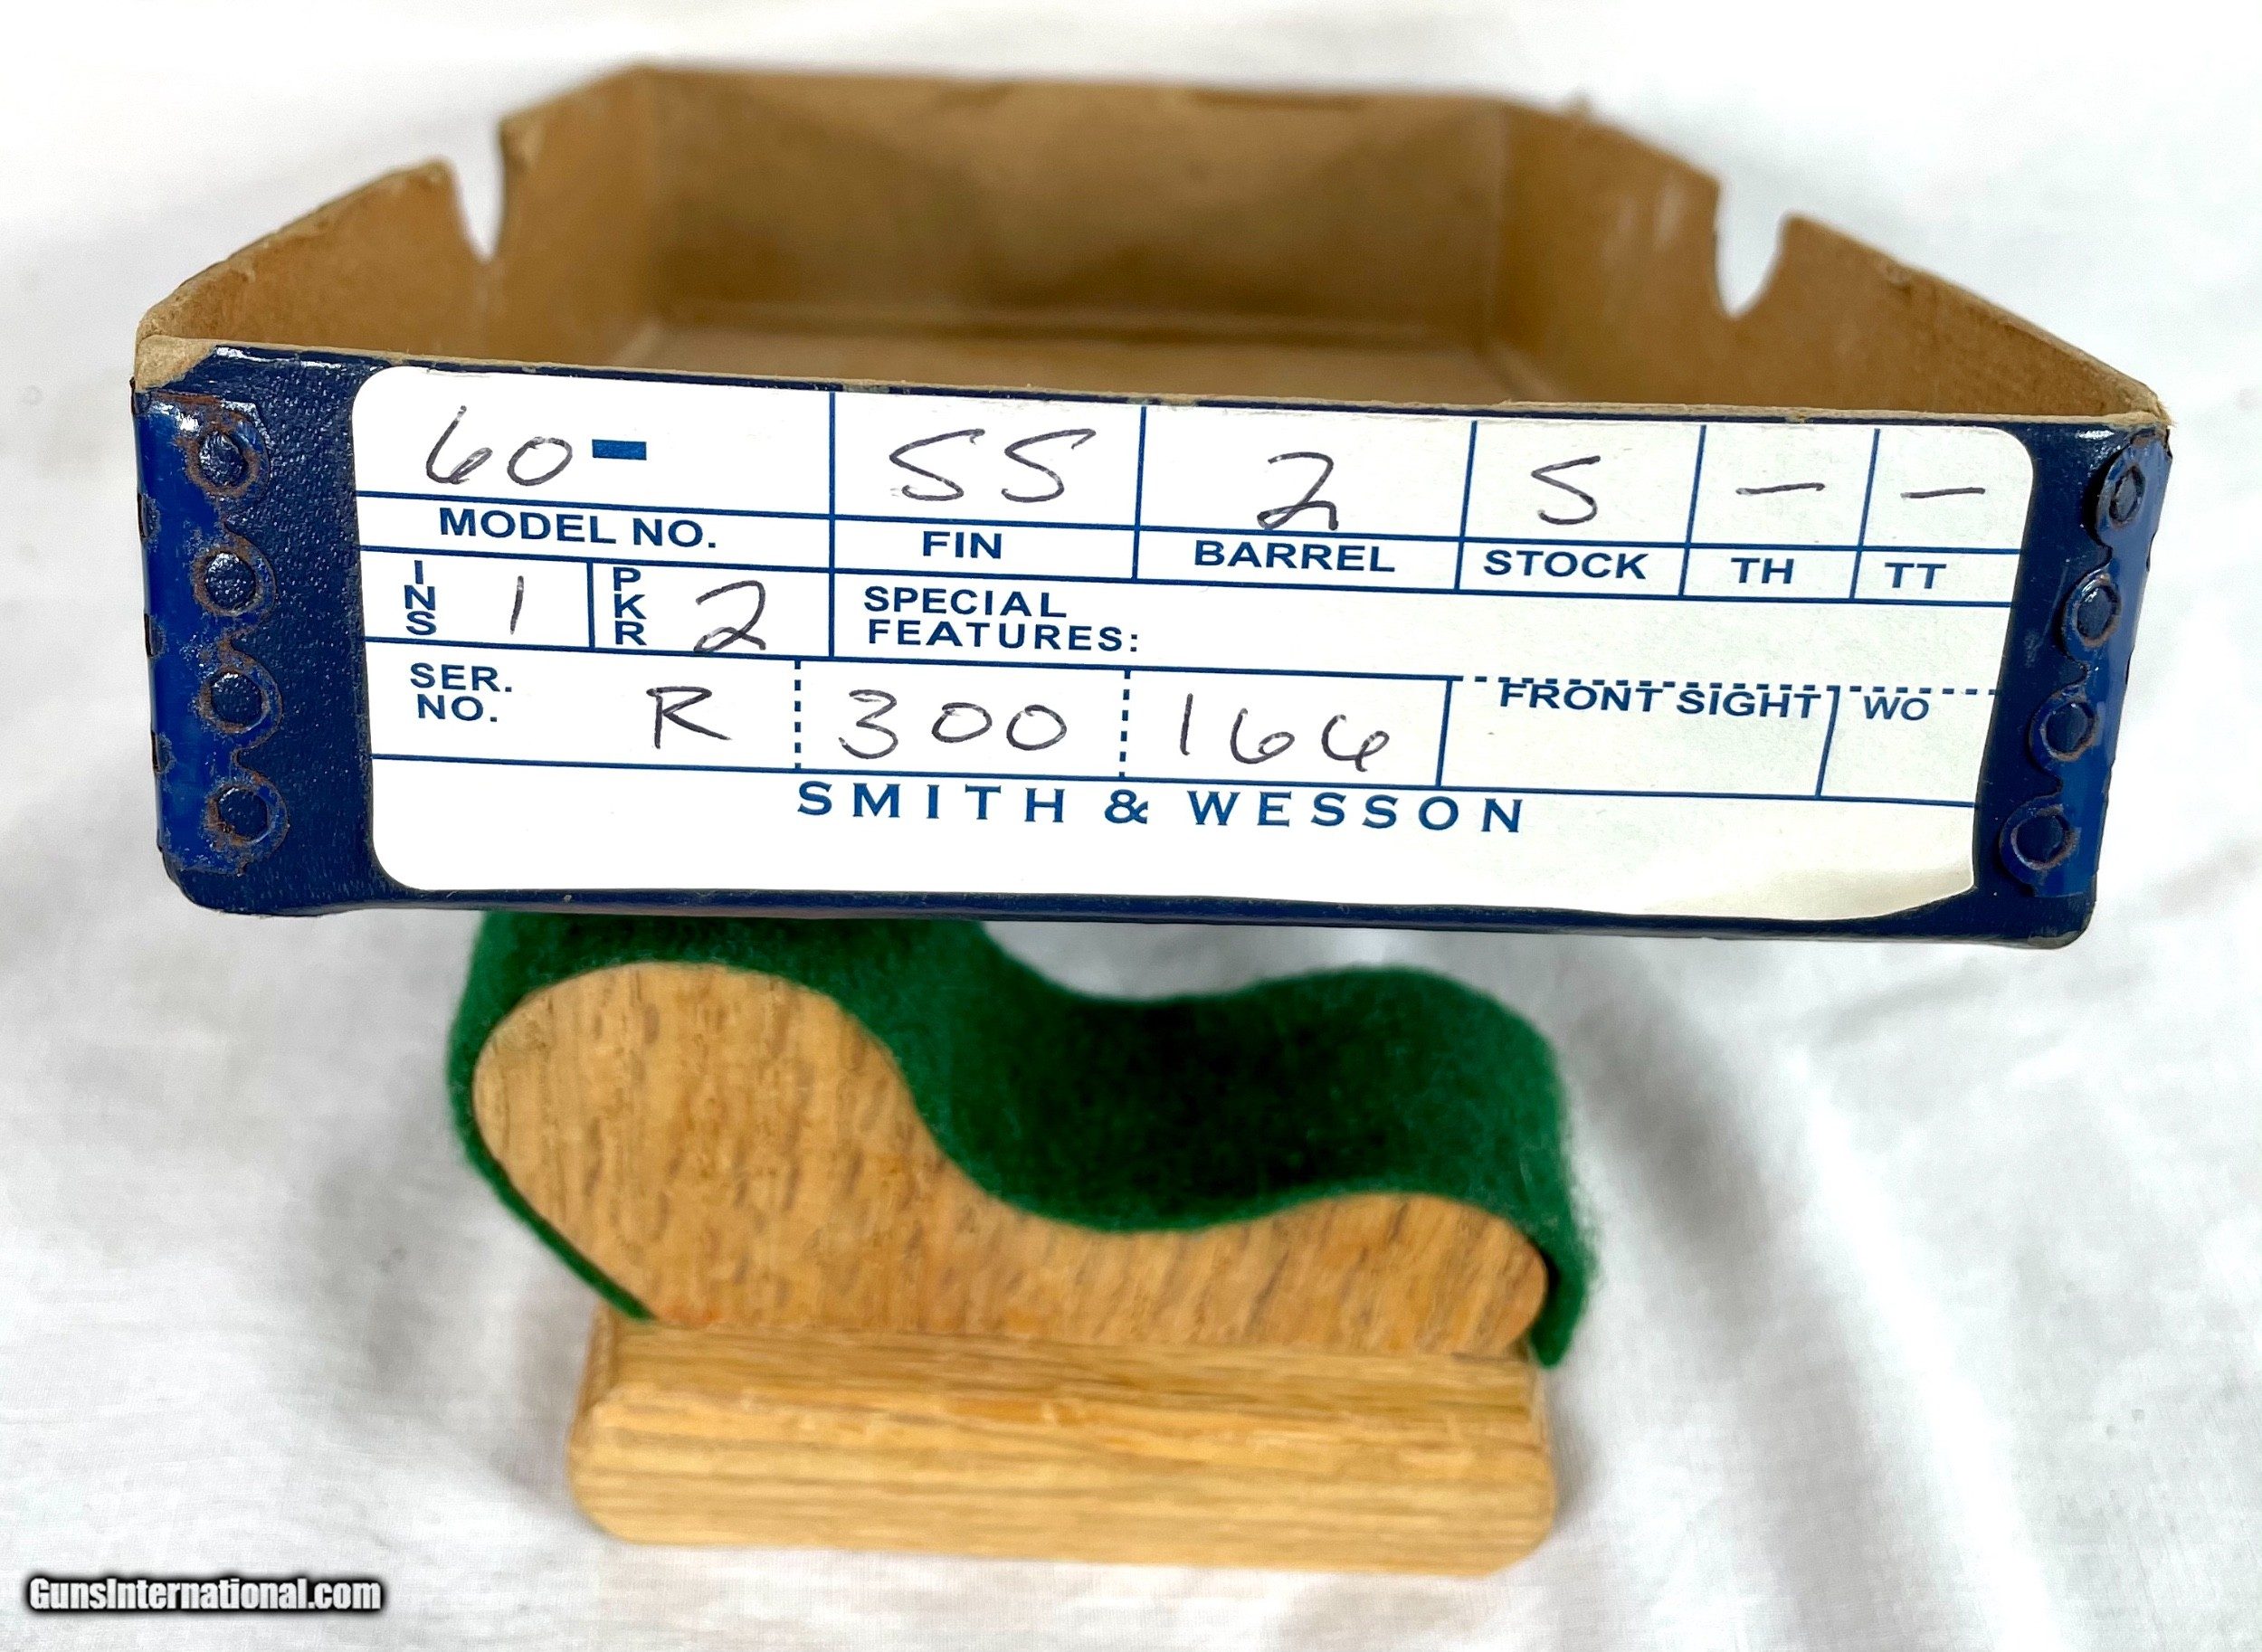 60- SS 2 S — —
MODEL NO. FIN BARREL STOCK TH TT
INS 1 PKR 2 SPECIAL
FEATURES:
SER.
NO. R 300 166 FRONT SIGHT WO
SMITH & WESSON
GunsInternational.com